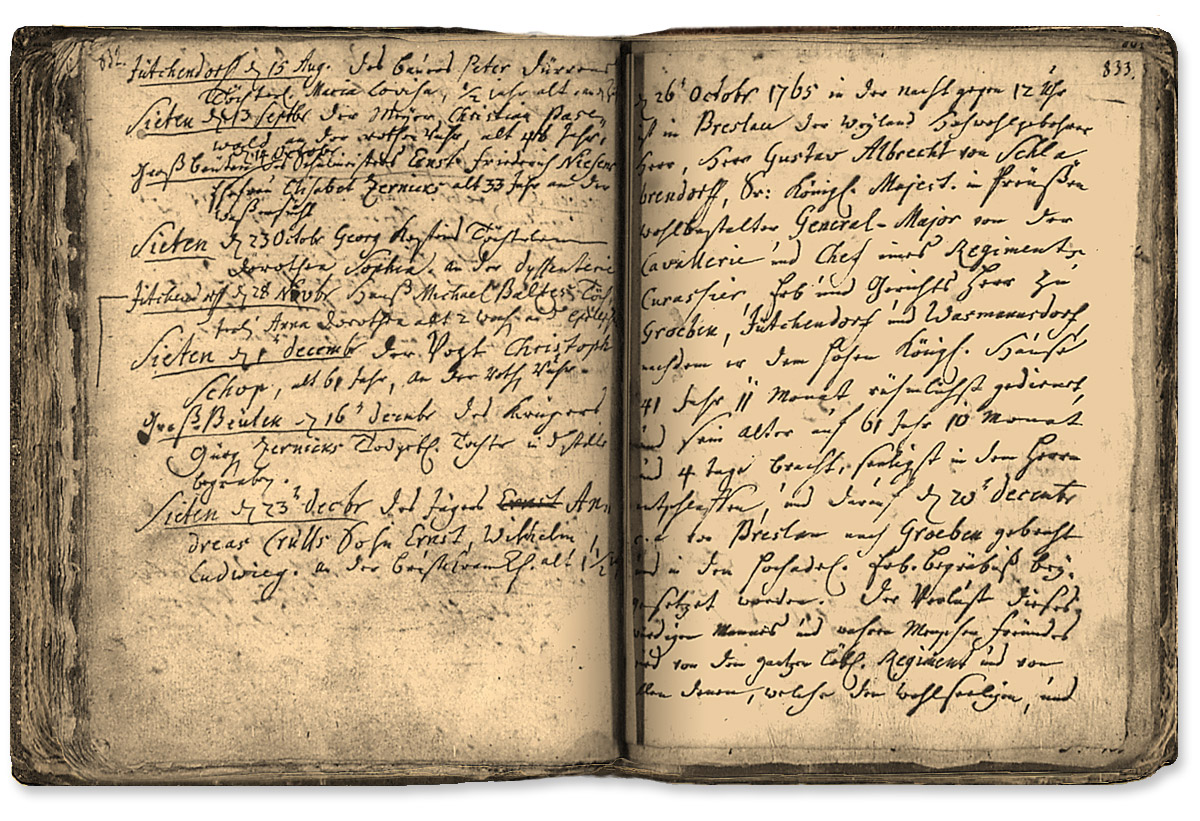 832.
Jütchendorff d 15 Aug. des bauers Peter Dürrens
Töchterl. Maria Lovisa, 1/2 Jahr alt an d
Sieten d 13 Septbr der Meyer, Christian Pase,
wald an der rothen Ruhr, alt 46 Jahr,
Groß beuten d 14 Octobr des Schulmeisters Ernst Friederich Niesens
Ehefrau Elisabet Zernicks alt 33 Jahr an der
Waßersucht
Sieten d 23 Octobr Georg Töchterlein
Dorothea Sophia. an der dyssenterie
Jütchendorff d 28 Novbr Hanß Michael Baltzes Töch
Anna Dorothea alt 2 woch an d
Sieten d 1 decemb der Vogt Christoph
Schop, alt 61 Jahr, an der roth. Ruhr.
Groß Beuten d 16 decmbr des Krügers
Zernicks Todgeb. Tochter in d stille
begraben.
Sieten d 23 decbr des Jägers Ernst An,
dreas Crülls Sohn Ernst, Wilhelm,
Ludwieg. an der alt 1 1/2
833.
d 26 Octobr 1765 in der nacht gegen 12 Uhr
ist in Breslau der Weyland Hochwohlgebohrne
Herr, Herr Gustav Albrecht von Schla,
brendorff, Sr: Königl. Majest. in Preüßen
wohlbestalter General-Major von der
Cavallerie und Chef eines Regiments
Curassier, Erb und Gerichts Herr zu
Groeben, Jütchendorf und Wasmannsdorf
nachdem er dem hohen Königl. Hause
41 Jahr 11 Monat rühmlichst gedienet,
und sein Alter auf 61 Jahr 10 Monat
und 4 tage bracht, seeligst in dem Herrn
entschlaffen, und darauf d 20 decembr
von Breslau nach Groeben gebracht
und in dem Hochadel. Erb-Begräbniß bey,
gesetzet worden. Der Verlust dieses
würdigen Mannes und wahren Menschen Freündes
wird von dem gantzen Löbl. Regiment und von
allen denen, welche den wohlseeligen, und